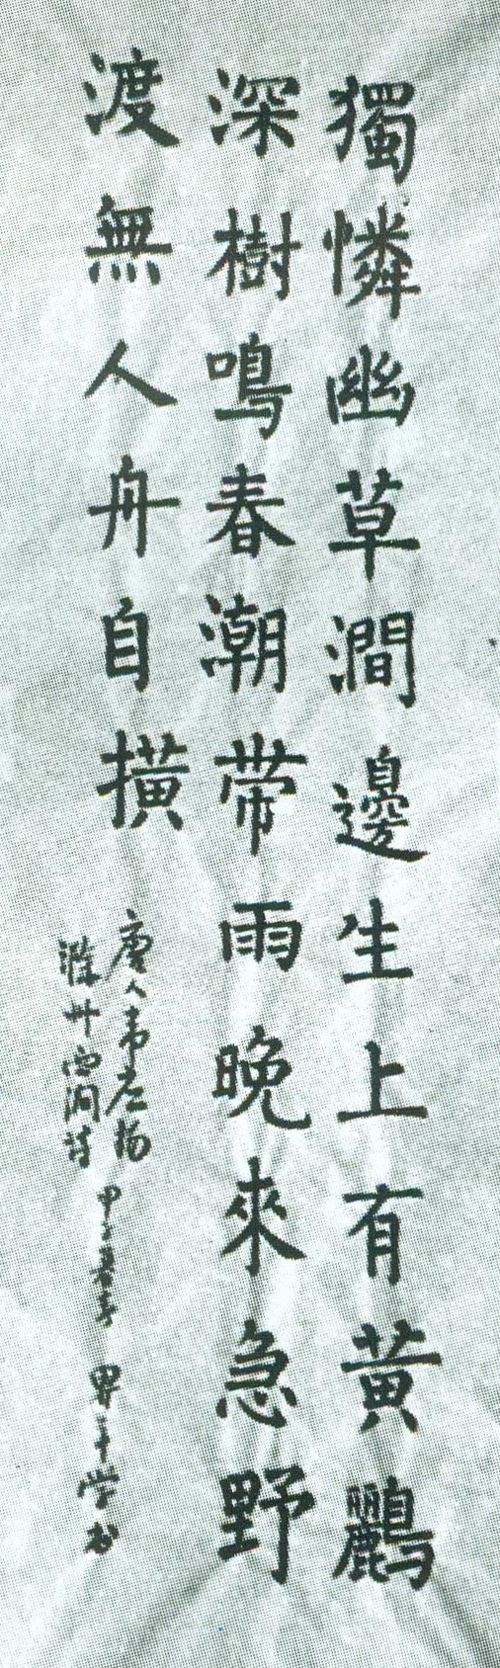 獨憐幽草澗邊生上有黃鸝
深樹鳴春潮帶雨晚來急野
渡無人舟自橫
唐人韋應物
滁州西澗詩
甲子